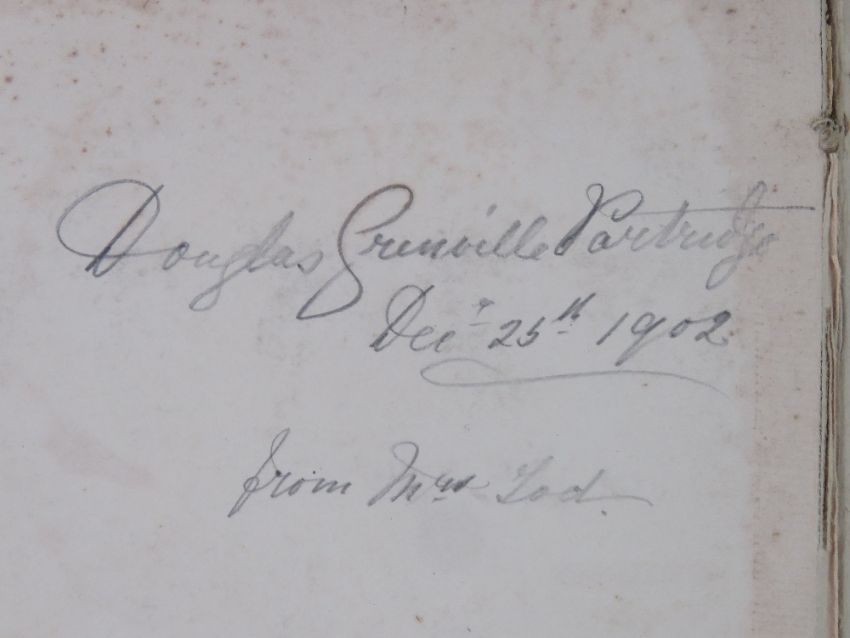 Douglas Grenville Partridge
Decr 25th 1902
from Mrs Tod.